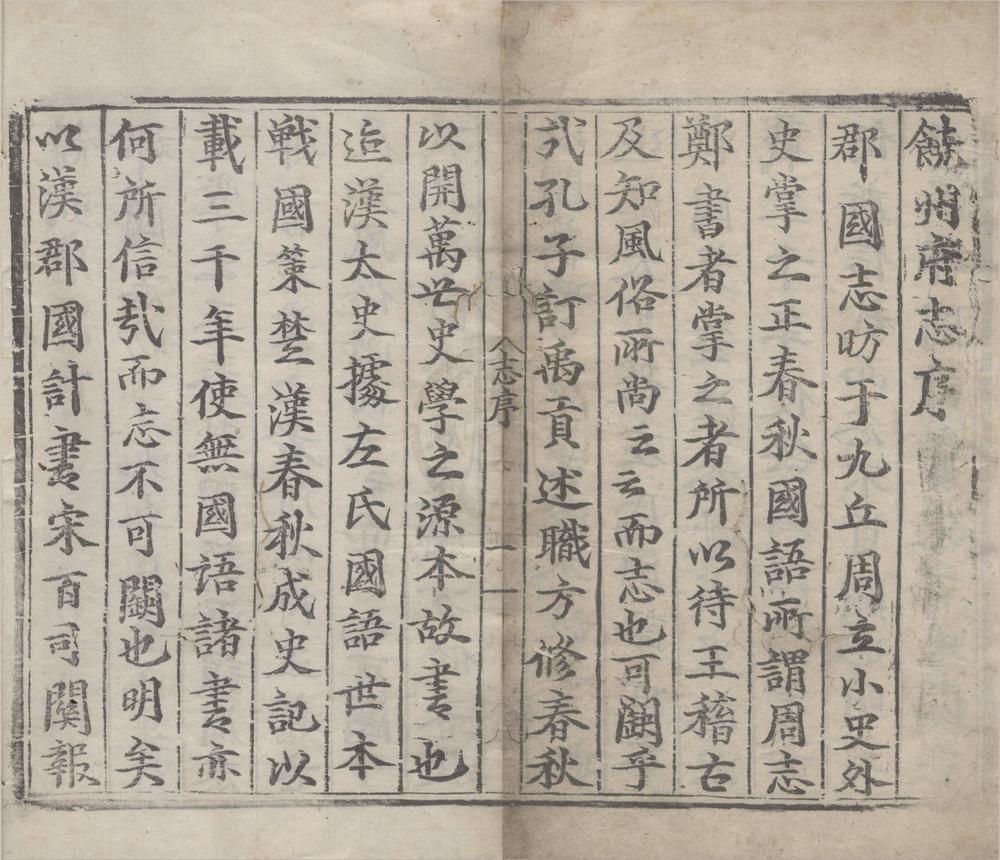 饒州府志序
郡國志昉于九丘周立小史外
史掌之正春秋國語所謂周志
鄭書者掌之者所以待王稽古
及知風俗所尚云云而志也可闕乎
弍孔子訂禹貢述職方修春秋
志序
二
以開萬世史學之源本故書也
迨漢太史據左氏國語世本
戰國策楚漢春秋成史記以
載三千年使無國語諸書亦
何所信哉而志不可闕也明矣
以漢郡國計書宋百司關報